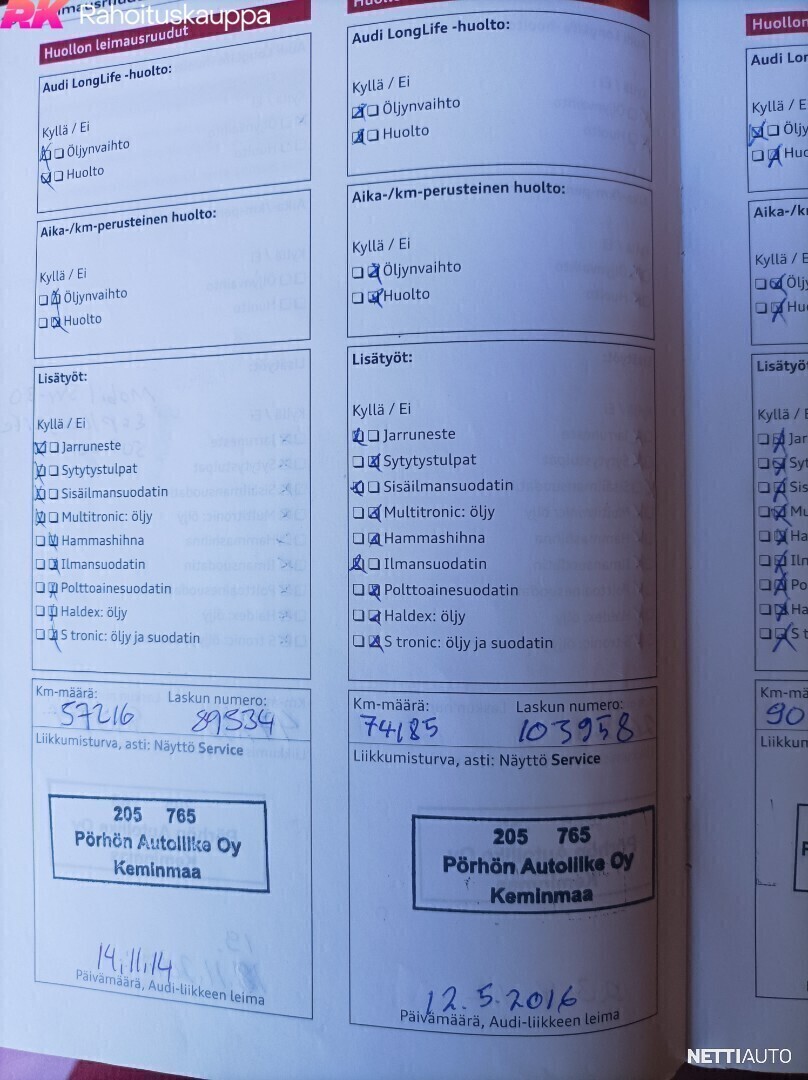 RK Rahoituskauppa
Huollon leimausruudut
Audi LongLife -huolto:
Kyllä / Ei
Öljynvaihto
Huolto
Aika-/km-perusteinen huolto:
Kyllä / Ei
Öljynvaihto
Huolto
Lisätyöt:
Kyllä / Ei
Jarruneste
Sytytystulpat
Sisäilmansuodatin
Multitronic: öljy
Hammashihna
Ilmansuodatin
Polttoainesuodatin
Haldex: öljy
S tronic: öljy ja suodatin
Km-määrä: Laskun numero:
57216 89534
Liikkumisturva, asti: Näyttö Service
205 765
Pörhön Autoliike Oy
Keminmaa
14.11.14
Päivämäärä, Audi-liikkeen leima
Audi LongLife -huolto:
Kyllä / Ei
Öljynvaihto
Huolto
Aika-/km-perusteinen huolto:
Kyllä / Ei
Öljynvaihto
Huolto
Lisätyöt:
Kyllä / Ei
Jarruneste
Sytytystulpat
Sisäilmansuodatin
Multitronic: öljy
Hammashihna
Ilmansuodatin
Polttoainesuodatin
Haldex: öljy
S tronic: öljy ja suodatin
Km-määrä: Laskun numero:
74185 103958
Liikkumisturva, asti: Näyttö Service
205 765
Pörhön Autoliike Oy
Keminmaa
12.5.2016
Päivämäärä, Audi-liikkeen leima
Huollon
Audi Lon
Kyllä / Ei
Öljy
Huo
Aika-/k
Kyllä / E
Öljy
Huo
Lisätyö
Kyllä /
Jar
Syt
Sis
Mu
Ha
Iln
Po
Ha
S t
Km-mä
90
Liikkum
NETTIAUTO